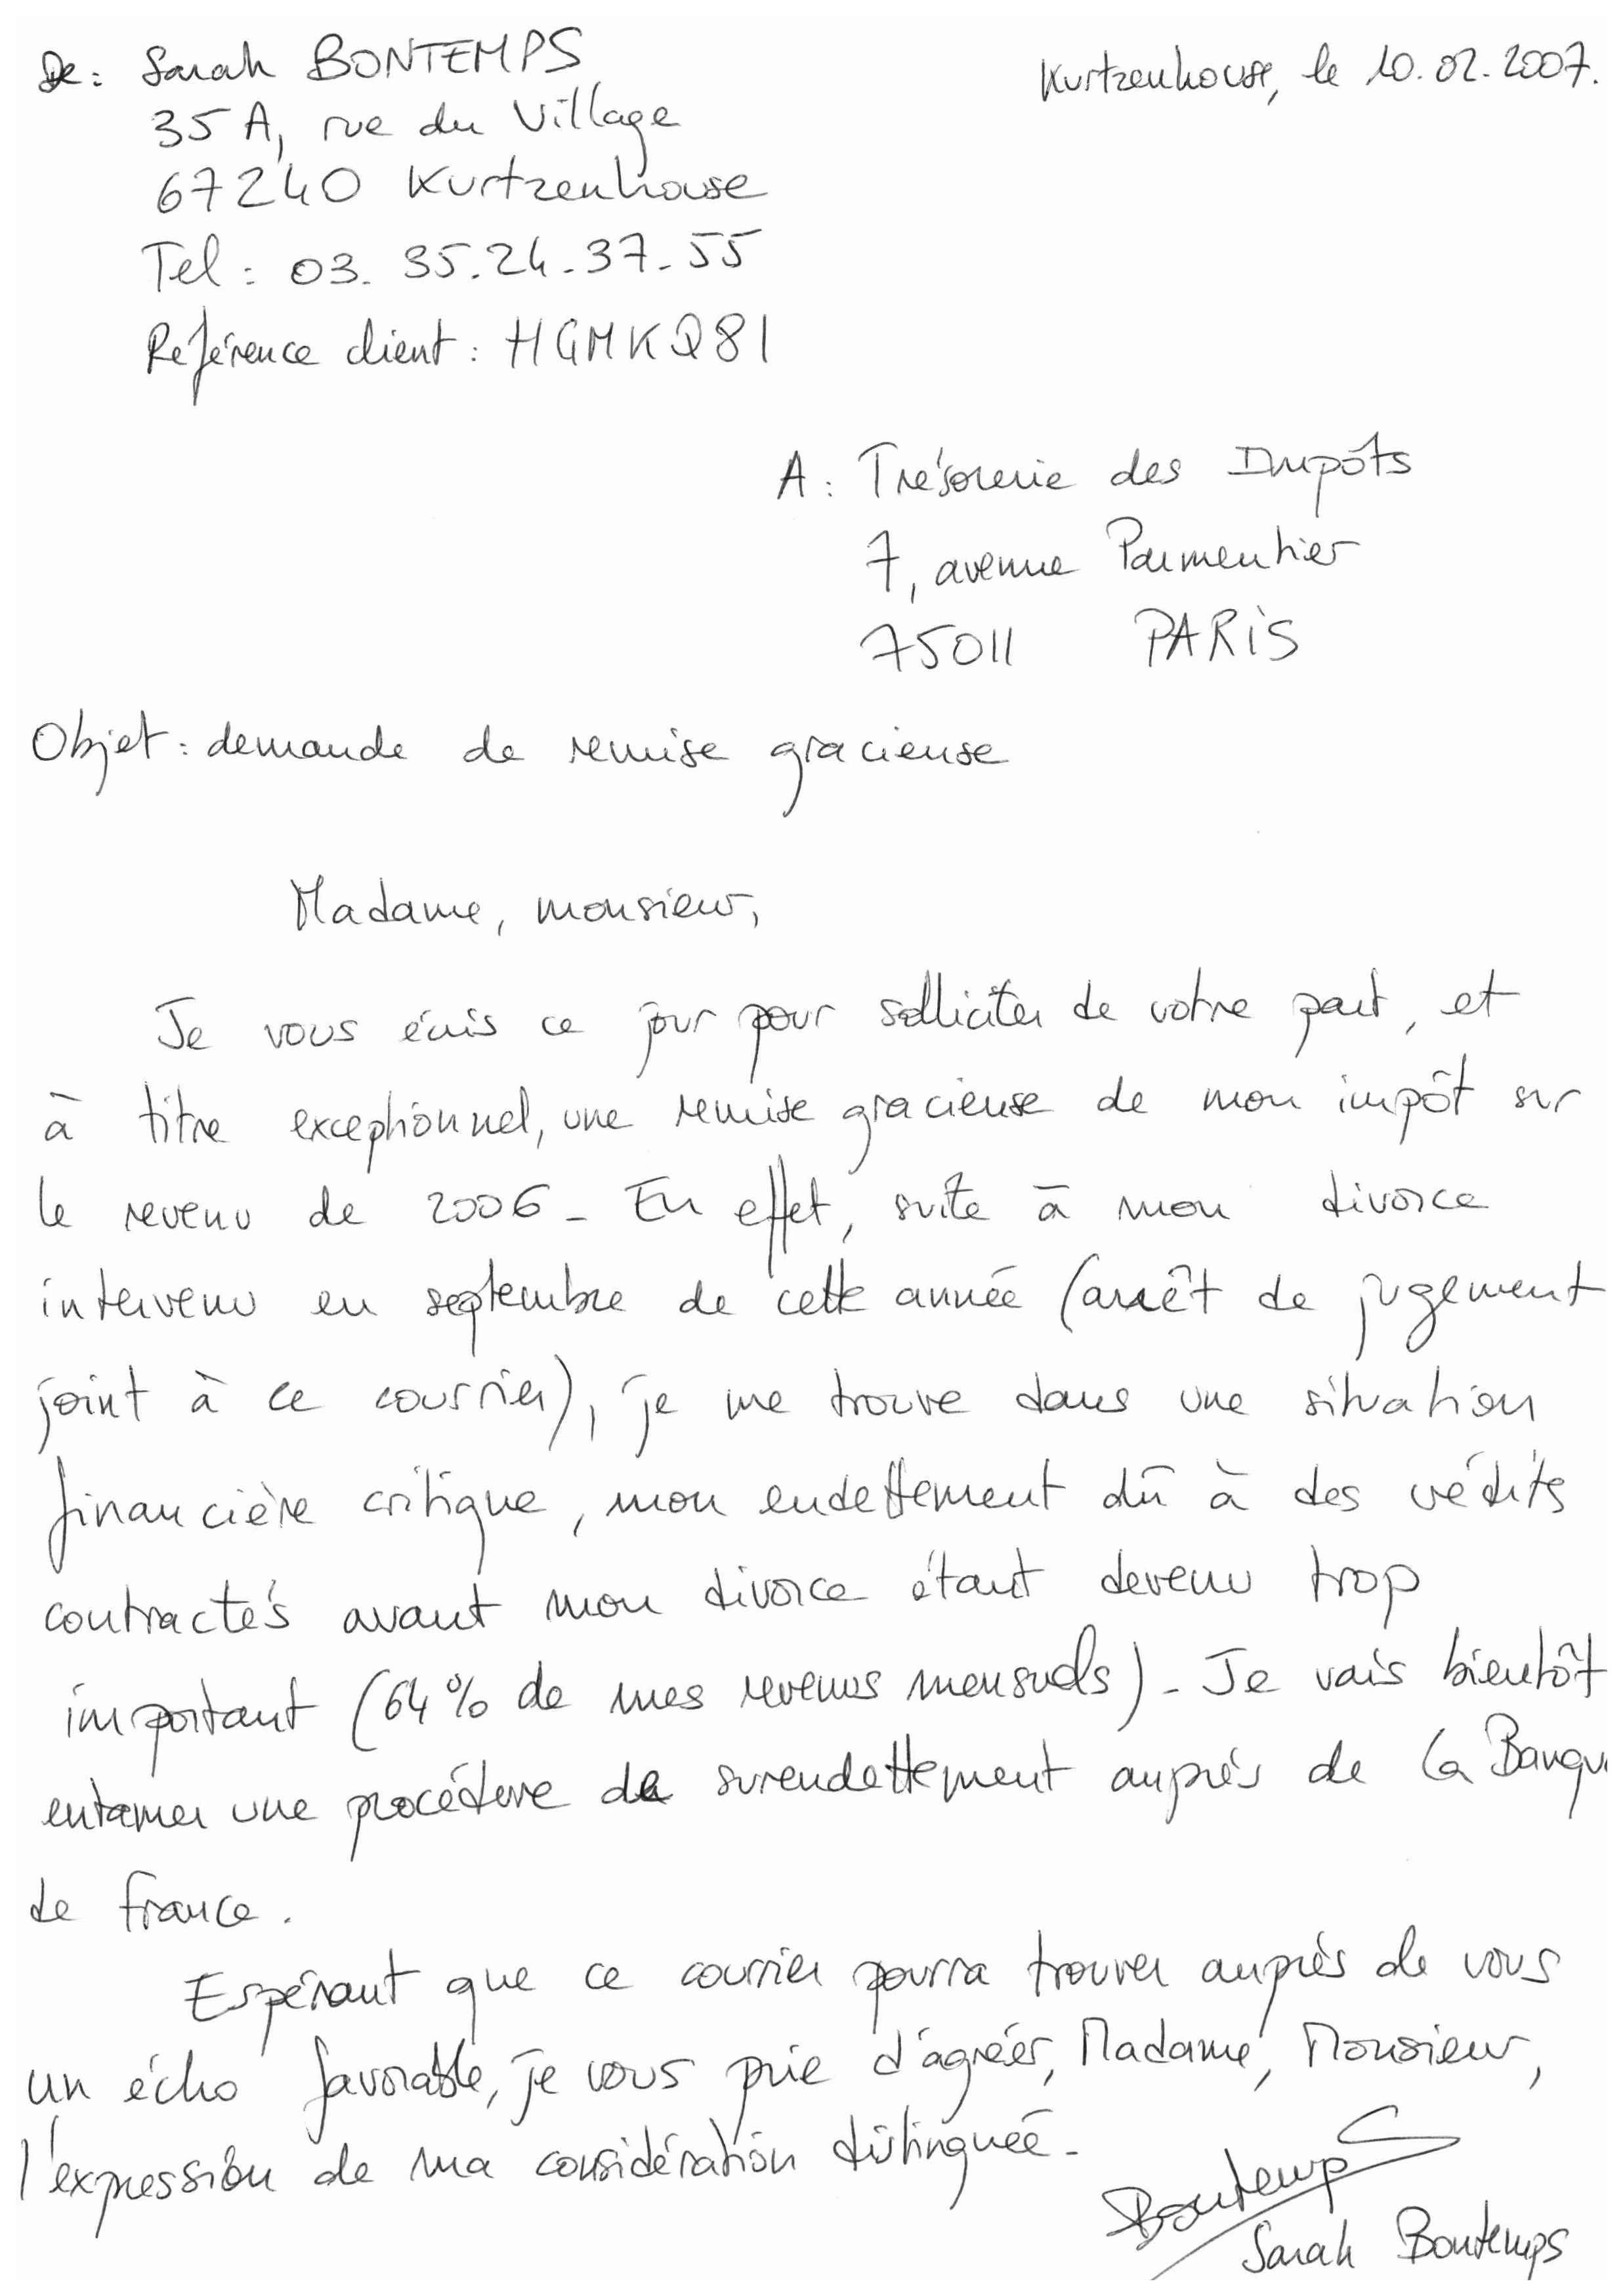 De : Sarah BONTEMPS
Kurtzenhouse, le 10.02.2007.
35 A, rue du Village
67240 Kurtzenhouse
Tel : 03. 35.24.37.55
Reférence client : HGMKQ81
A : Trésorerie des Impôts
7, avenue Parmentier
75011 PARIS
Objet : demande de remise gracieuse
Madame, monsieur,
Je vous écris ce jour pour solliciter de votre part, et
à titre exceptionnel, une remise gracieuse de mon impôt sur
le revenu de 2006. En effet, suite à mon divorce
intervenu en septembre de cette année (arrêt de jugement
joint à ce courrier), je me trouve dans une situation
financière critique, mon endettement dû à des crédits
contractés avant mon divorce étant devenu trop
important (64% de mes revenus mensuels). Je vais bientôt
entamer une procédure de surendettement auprès de la Banqu
de france.
Espérant que ce courrier pourra trouver auprès de vous
un écho favorable, je vous prie d'agréer, Madame, Monsieur,
l'expression de ma considération distinguée.
Bontemps
Sarah Bontemps